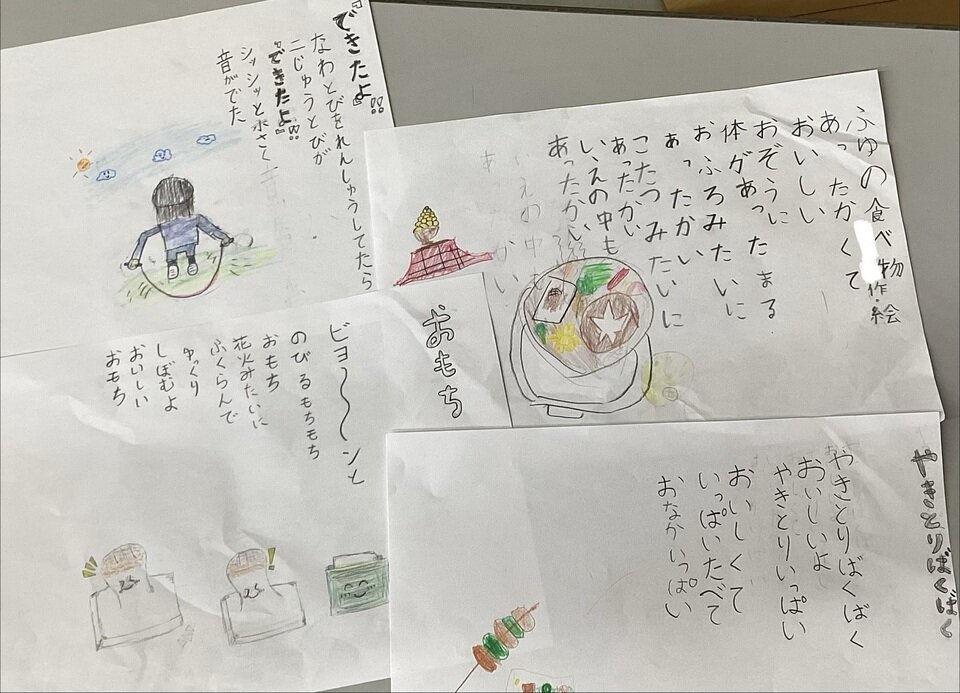 『できたよ』!!
なわとびをれんしゅうしてたら
二じゅうとびが
『できたよ』!!
シッシッと小さく
音がでた
ふゆの食べ物
作・絵
あったかくて
おいしい
おぞうに
体があったまる
おふろみたいに
あったかい
こたつみたいに
あったかい
いえの中も
あったかい
おもち
ビヨ〜〜ンと
のびるもちもち
おもち
花火みたいに
ふくらんで
ゆっくり
しぼむよ
おいしい
おもち
やきとりぱくぱく
やきとりぱくぱく
おいしいよ
やきとりいっぱい
おいしくて
いっぱいたべて
おなかいっぱい